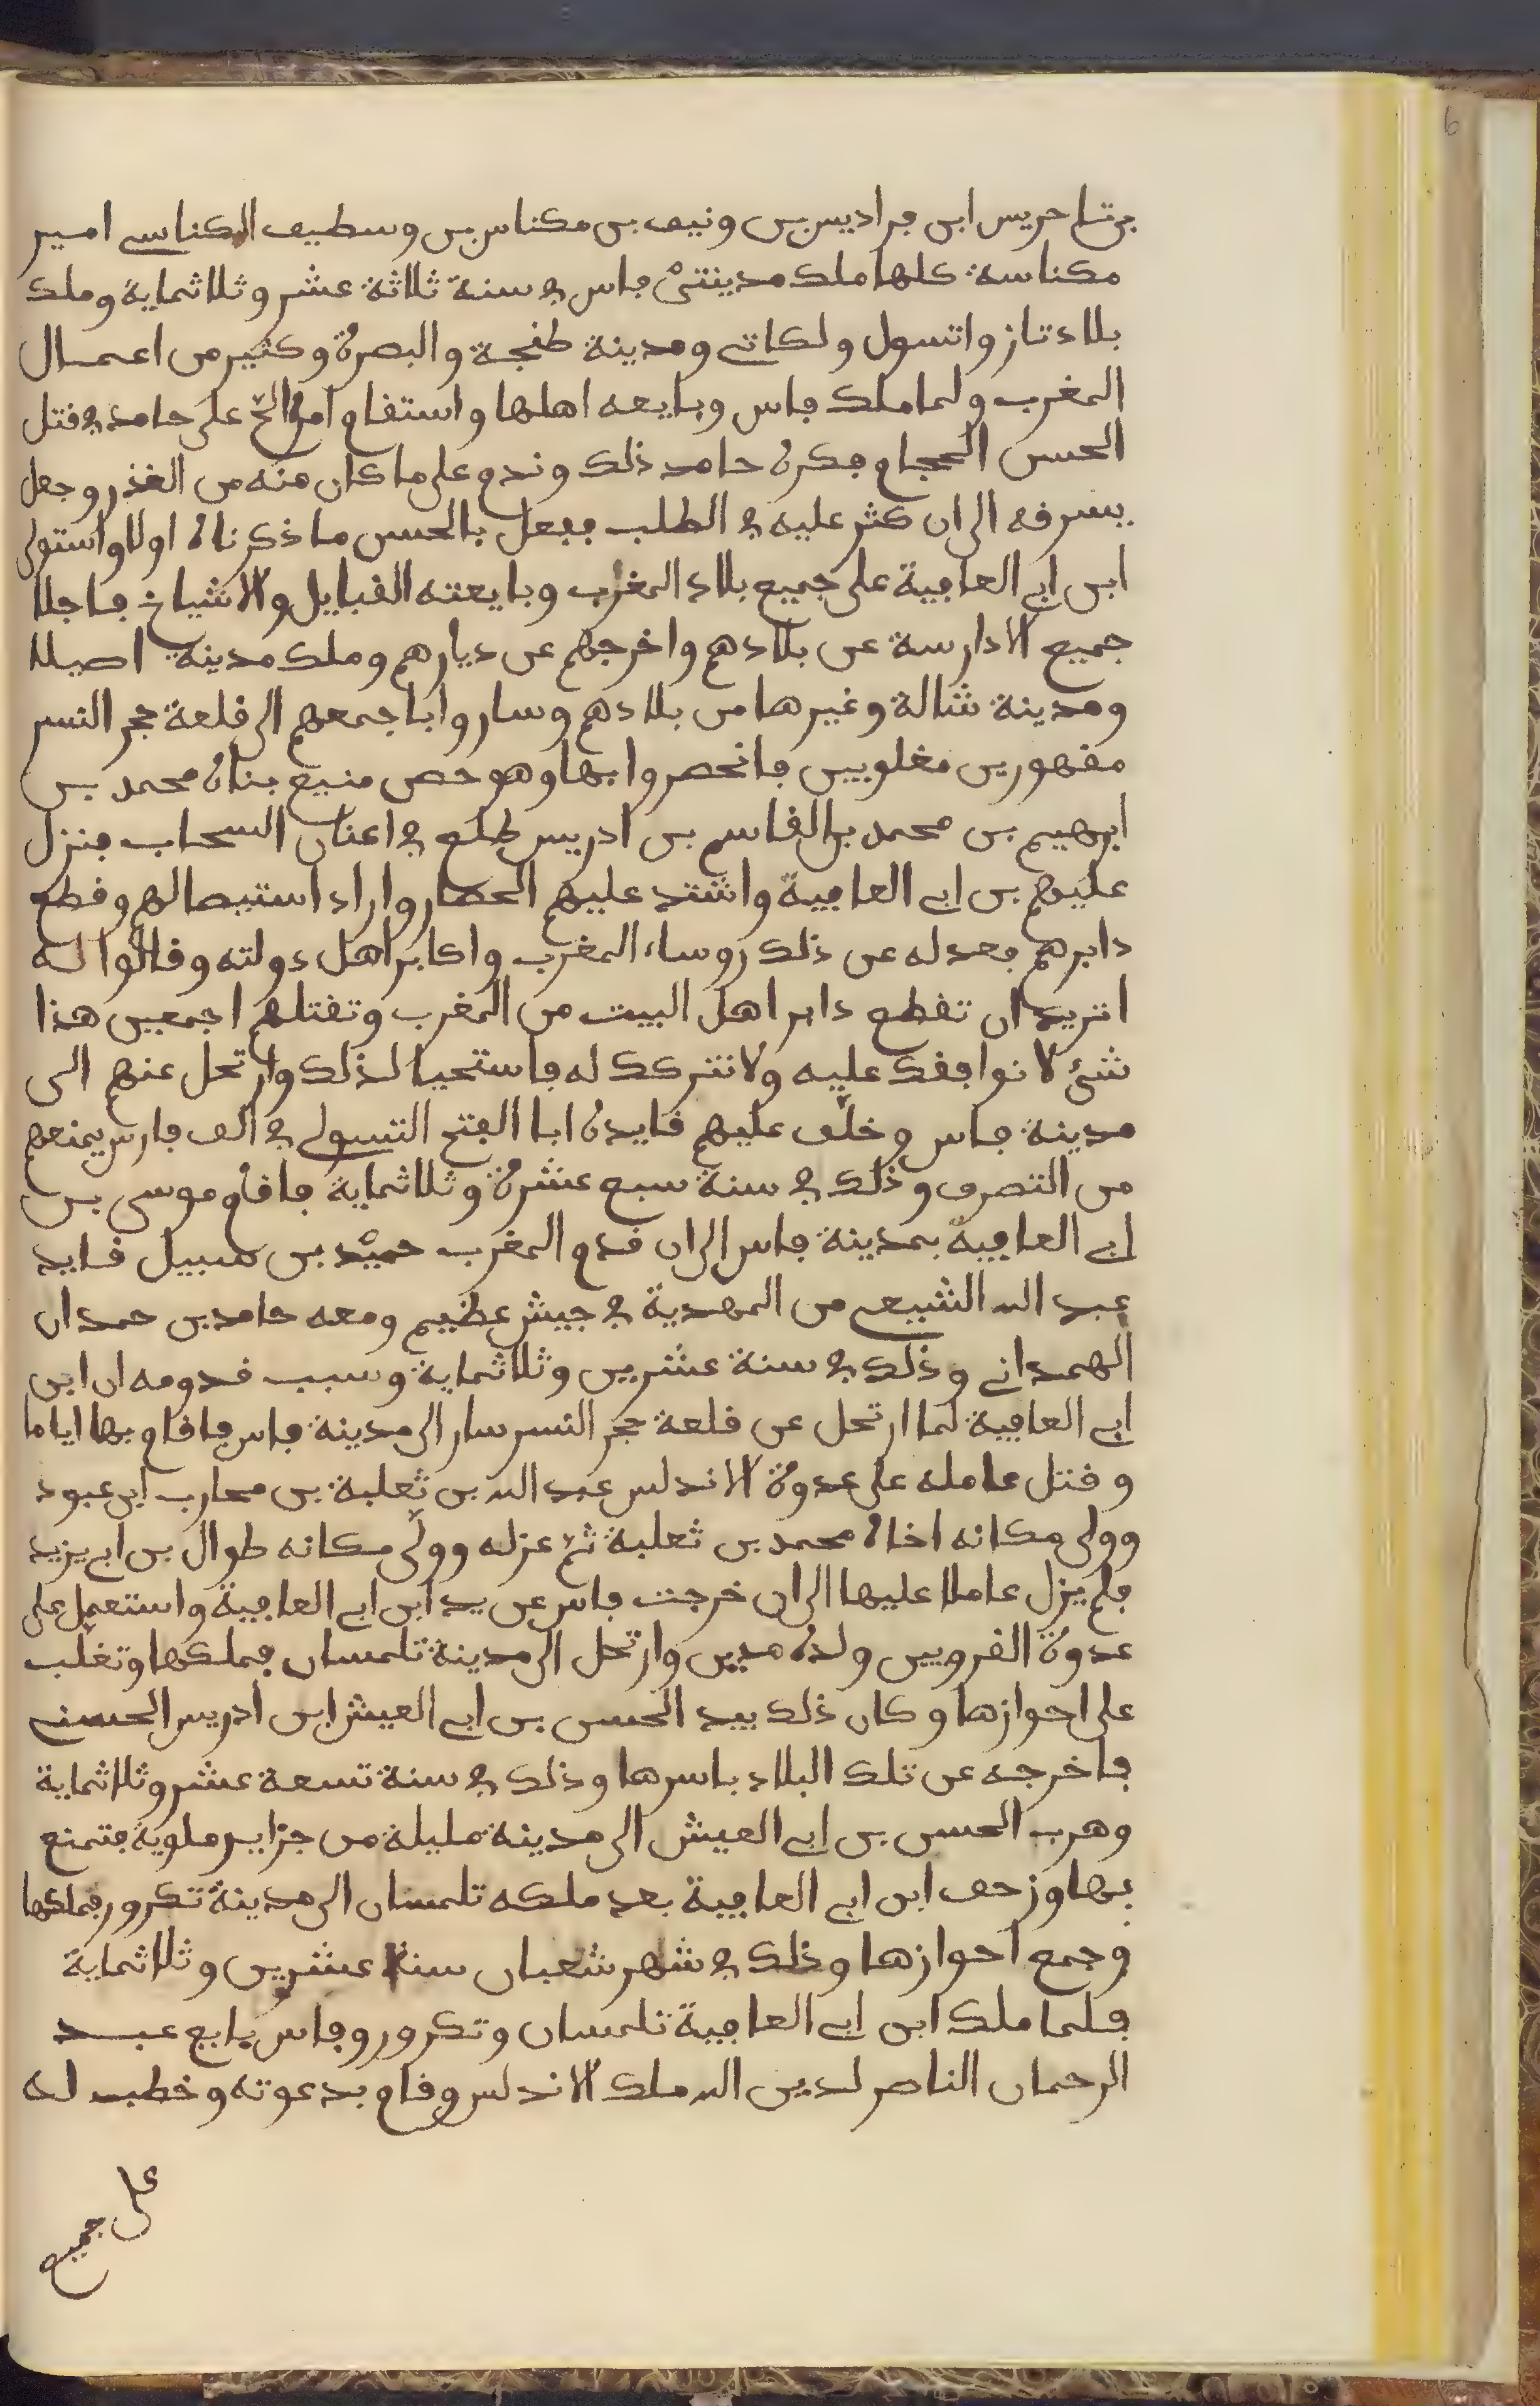 بن تسا حريس ابن فراديس بن ونيف بن مكناس بن وسطيف المكناسي امير
مكناسة كلها ملك مدينتيْ فاس في سنة ثلاثة عشر وثلاثماية وملك
بلاد تاز واتسول ولكاتي ومدينة طنجة والبصرة وكثير من اعمـال
المغرب ولما ملك فاس وبايعه اهلها واستقام امره الحّ على حامد في قتل
الحسن الحجام فكره حامد ذلك وندم على ما كان منه من الغذر وجعل
يسرفه الى ان كثر عليه في الطلب ففعل بالحسن ما ذكرناه اولا واستولى
ابن ابي العافية على جميع بلاد المغرب وبايعته القبايل والاشياخ فاجلا
جميع الادارسة عن بلادهم واخرجهم عن ديارهم وملك مدينة اصيلا
ومدينة شالة وغيرها من بلادهم وساروا باجمعهم الى قلعة حجر النسر
مقهورين مغلوبين فانحصروا بها وهو حصن منيع بناه محمد بن
ابرهيم بن محمد بن القاسم بن ادريس طلع في اعنان السحاب فنزل
عليهم بن ابي العافية واشتد عليهم الحصار واراد استيصالهم وقطع
دابرهم فعدله عن ذلك روساء المغرب واكابر اهل دولته وقالوا له
اتريد ان تقطع دابر اهل البيت من المغرب وتقتلهم اجمعين هذا
شئ لا نوافقك عليه ولا نتركك له فاستحيا لذلك وارتحل عنهم الى
مدينة فاس وخلّف عليهم قايده ابا الفتح التسولي في الف فارس يمنعهم
من التصرف وذلك في سنة سبع عشرة وثلاثماية فاقام موسى بن
ابي العافية بمدينة فاس الى ان قدم المغرب حميْد بن سبيل قايد
عبد الله الشيعي من المهدية في جيش عظيم ومعه حامد بن حمدان
الهمداني وذلك في سنة عشرين وثلاثماية وسبب قدومه ان ابن
ابي العافية لما ارتحل عن قلعة حجر النسر سار الى مدينة فاس فاقام بها اياما
وقتل عامله على عدوة الاندلس عبد الله بن ثعلبة بن محارب ابن عبود
وولى مكانه اخاه محمد بن ثعلبة ثم عزله وولّى مكانه طوال بن ابي يزيد
فلم يزل عاملا عليها الى ان خرجت فاس عن يد ابن ابي العافية واستعمل على
عدوة القرويين ولده مدين وارتحل الى مدينة تلمسان فملكها وتغلّب
على احوازها وكان ذلك بيد الحسن بن ابي العيش ابن ادريس الحسني
فاخرجه عن تلك البلاد باسرها وذلك في سنة تسعة عشر وثلاثماية
وهرب الحسن بن ابي العيش الى مدينة مليلة من جزاير ملوية فتمنع
بها وزحف ابن ابي العافية بعد ملكه تلمسان الى مدينة تكرور فملكها
وجمع احوازها وذلك في شهر شعبان سنة عشرين وثلاثماية
فلما ملك ابن ابي العافية تلمسان وتكرور وفاس بايع عبـد
الرحمان الناصر لدين الله ملك الاندلس وقام بدعوته وخطب له
على جميع
6